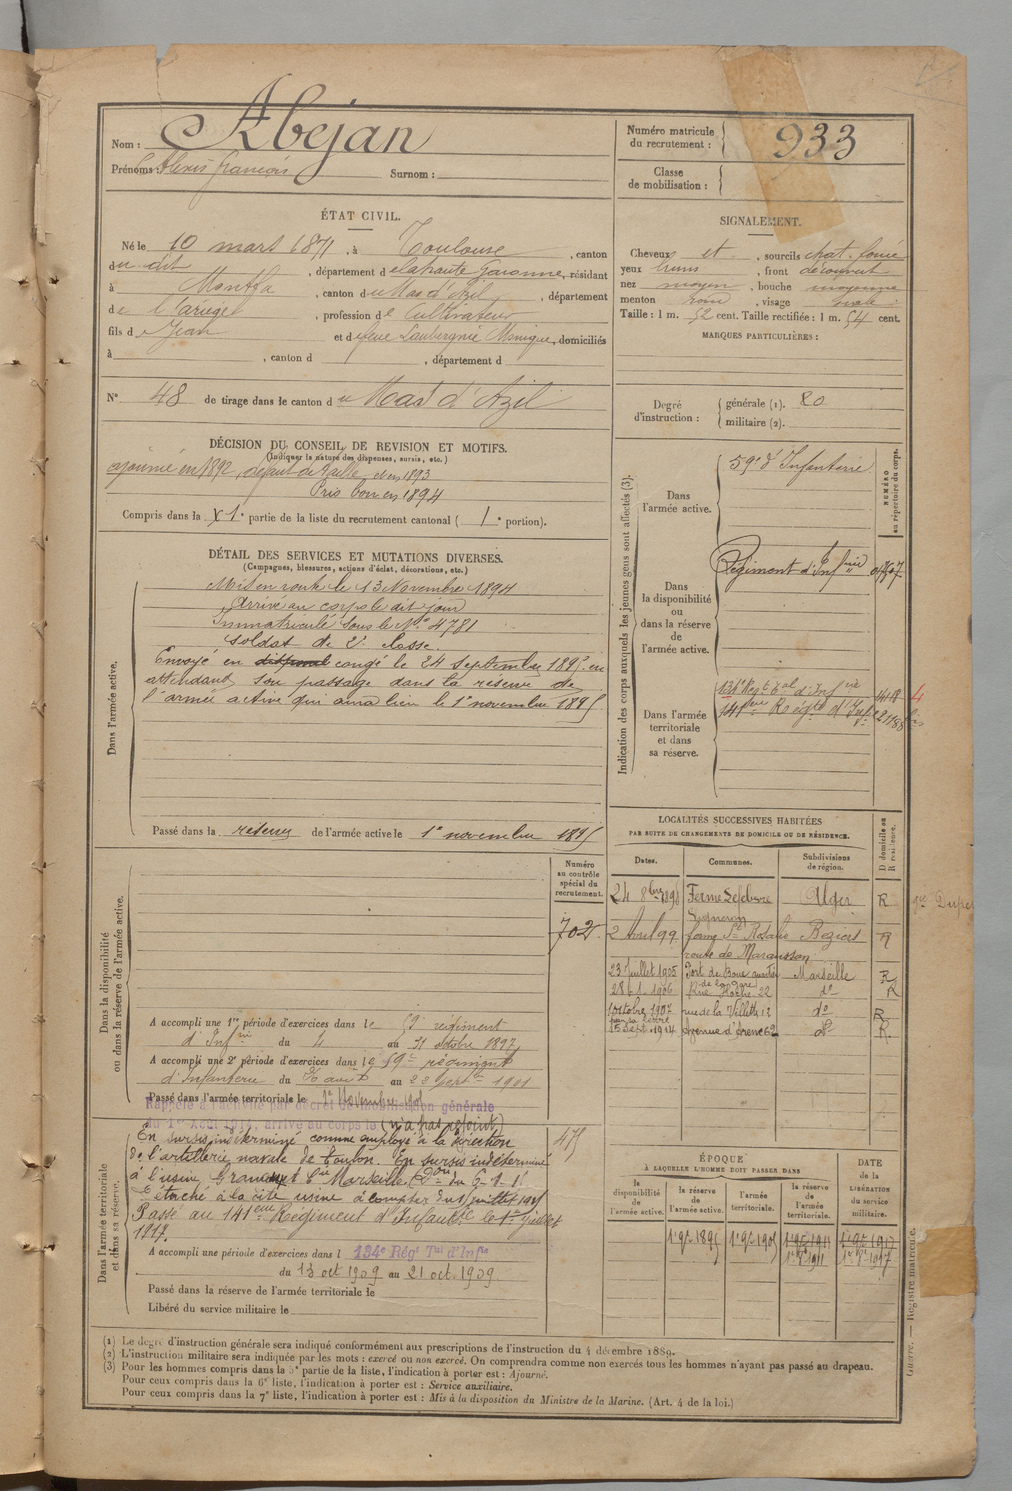 Nom : Abejan
Prénoms : Alexis françois Surnom :
Numéro matricule
du recrutement : 933
Classe
de mobilisation :
ÉTAT CIVIL.
Né le 10 mars 1871, à Toulouse, canton
du dit, département de la haute Garonne, résidant
à Montfa, canton du Mas d'Azil, département
de l'ariège, profession de Cultivateur
fils de Jean et de feue Laubergnie Monique, domiciliés
à , canton d , département d
N° 48 de tirage dans le canton du Mas d'Azil
SIGNALEMENT.
Cheveux et , sourcils chat. fonce
yeux bruns , front découvert
nez moyen , bouche moyenne
menton rond , visage ovale
Taille : 1 m. 52 cent. Taille rectifiée : 1 m. 54 cent.
MARQUES PARTICULIÈRES :
Degré
d'instruction :
générale (1). 20
militaire (2).
DÉCISION DU CONSEIL DE REVISION ET MOTIFS.
(Indiquer la nature des dispenses, sursis, etc.)
ajourné en 1892, défaut de taille, et en 1893
Pris bon en 1894
Compris dans la 1e partie de la liste du recrutement cantonal ( 1e portion).
DÉTAIL DES SERVICES ET MUTATIONS DIVERSES.
(Campagnes, blessures, actions d'éclat, décorations, etc.)
Dans l'armée active.
Mis en route le 13 Novembre 1894
Arrivé au corps le dit jour
Immatriculé sous le N° 4781
soldat de 2e classe.
Envoyé en congé le 24 septembre 1895 en
attendant son passage dans la réserve de
l'armée active qui aura lieu le 1er novembre 1895
Passé dans la réserve de l'armée active le 1er novembre 1895
Indication des corps auxquels les jeunes gens sont affectés (3).
NUMÉRO
au répertoire du corps.
Dans
l'armée active.
59e d'Infanterie
Dans
la disponibilité
ou
dans la réserve
de
l'armée active.
Régiment d'Infrie
Dans l'armée
territoriale
et dans
sa réserve.
134e Regt Tal d'Infie
141eme Regt d'Infie
LOCALITÉS SUCCESSIVES HABITÉES
PAR SUITE DE CHANGEMENTS DE DOMICILE OU DE RÉSIDENCE.
Dates. Communes. Subdivisions
de région. D domicile ou
R résidence.
24 8bre 1898 Ferme Lefebvre Alger R
2 Avril 99 Ste Rosalie Beziers R
route de Maraussan
23 Juillet 1905 Port de Bouc Marseille R
de la Gare
28-1-1906 Rue Hoche 22 do R
1 octobre 1907 rue de la Villette 13 do R
15 Sept. 1914 Avenue d'Arenc 62 do R
Dans la disponibilité
ou dans la réserve de l'armée active.
Numéro
au contrôle
spécial du
recrutement.
702
A accompli une 1re période d'exercices dans le 59e régiment
d'Infrie du 4 au 31 octobre 1897
A accompli une 2e période d'exercices dans le 59e régiment
d'Infanterie du au 22 septbre 1901
Passé dans l'armée territoriale le 1er Novembre 190
Rappelé à l'activité par décret de mobilisation générale
du 1er Août 1914, arrivé au corps le (n'a pas rejoint)
Dans l'armée territoriale
et dans sa réserve.
475
En sursis indéterminé comme employé à la direction
de l'artillerie navale de Toulon. En sursis indéterminé
à l'usine Marseille
Détaché à la dite usine à compter du 1 juillet 1917
Passé au 141eme Régiment d'Infantie le 1er Juillet
1917.
A accompli une période d'exercices dans l 134e Régt Tal d'Infie
du 13 oct 1909 au 21 oct. 1909
Passé dans la réserve de l'armée territoriale le
Libéré du service militaire le
ÉPOQUE
À LAQUELLE L'HOMME DOIT PASSER DANS
DATE
de la
LIBÉRATION
du service
militaire.
la
disponibilité
de
l'armée active.
la réserve
de
l'armée active.
l'armée
territoriale.
la réserve
de
l'armée
territoriale.
1er 9bre 1895 1er 9bre 1905 1er 9bre 1911 1er 9bre 1917
Guerre. — Registre matricule.
(1) Le degré d'instruction générale sera indiqué conformément aux prescriptions de l'instruction du 4 décembre 1889.
(2) L'instruction militaire sera indiquée par les mots : exercé ou non exercé. On comprendra comme non exercés tous les hommes n'ayant pas passé au drapeau.
(3) Pour les hommes compris dans la 5e partie de la liste, l'indication à porter est : Ajourné.
Pour ceux compris dans la 6e liste, l'indication à porter est : Service auxiliaire.
Pour ceux compris dans la 7e liste, l'indication à porter est : Mis à la disposition du Ministre de la Marine. (Art. 4 de la loi.)